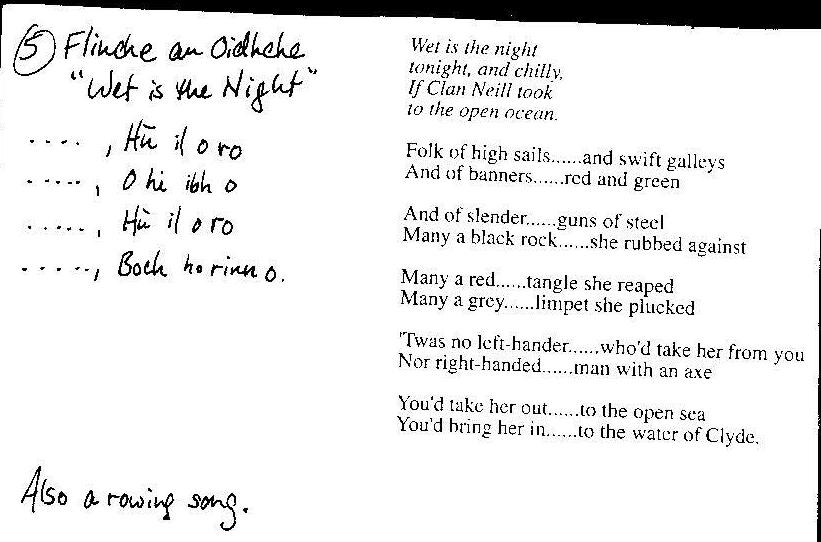 5 Flinche an Oidhche
"Wet is the Night"
...., Hù il o ro
....., O hi ibh o
....., Hù il o ro
....., Boch ho rinn o.
Also a rowing song.
Wet is the night
tonight, and chilly,
If Clan Neill took
to the open ocean.
Folk of high sails......and swift galleys
And of banners......red and green
And of slender......guns of steel
Many a black rock......she rubbed against
Many a red......tangle she reaped
Many a grey......limpet she plucked
'Twas no left-hander......who'd take her from you
Nor right-handed......man with an axe
You'd take her out......to the open sea
You'd bring her in......to the water of Clyde.